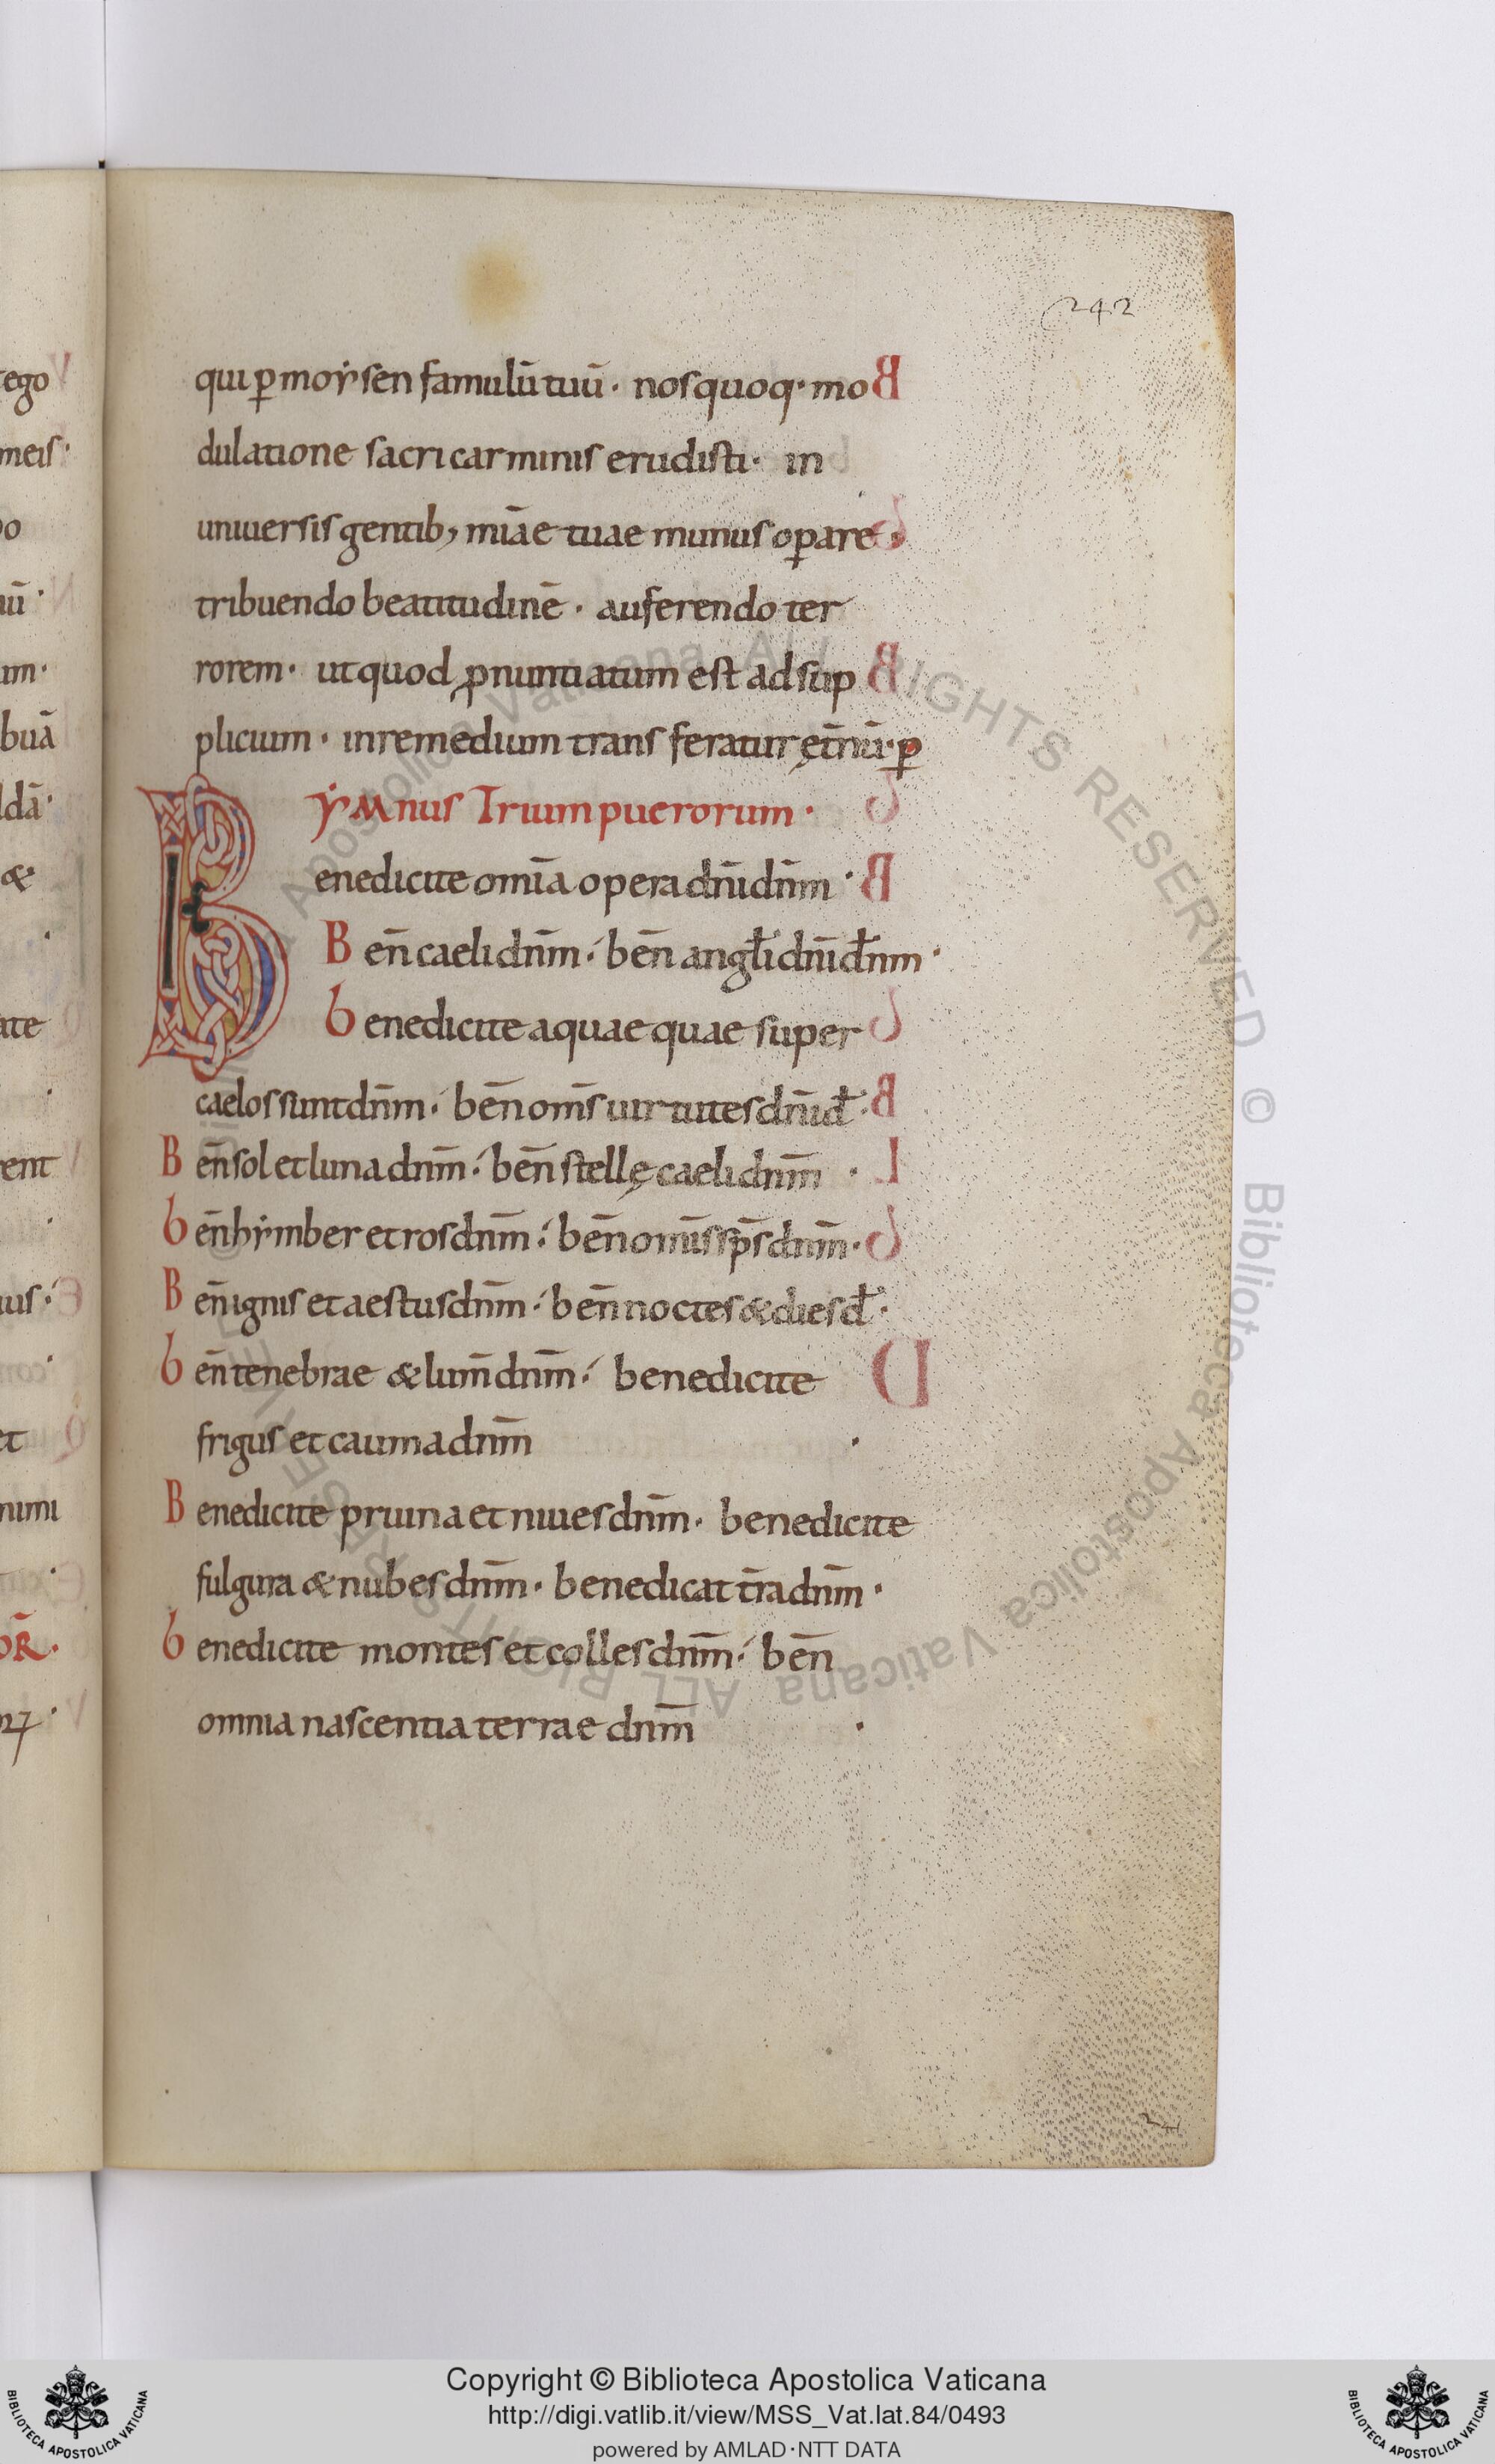 242
qui ꝑ moẏsen famulū tuū · nos quoq· mo
dulatione sacri carminis erudisti · in
uniuersis gentib; miāe tuae munus oꝑare ·
tribuendo beatitudinē · auferendo ter
rorem · ut quod ꝓnuntiatum est ad sup
plicium · in remedium transferatur ęt̄nū · ꝑ
ẏmnus Trium puerorum ·
Benedicite omīa opera dn̄i dn̄m ·
Ben̄ caeli dnm̄ · ben̄ angłi dn̄i dn̄m ·
benedicite aquae quae super
caelos sunt dn̄m · ben̄ oms̄ uirtutes dn̄i đ ·
Ben̄ sol et luna dnm̄ · ben̄ stellę caeli dnm̄ ·
ben̄ hẏmber et ros dnm̄ · ben̄ omīs sp̄s dnm̄ ·
Ben̄ ignis et aestus dnm̄ · ben̄ noctes & dies đ ·
ben̄ tenebrae & lum̄ dnm̄ · benedicite
frigus et cauma dnm̄ ·
Benedicite pruina et niues dnm̄ · benedicite
fulgura & nubes dnm̄ · benedicat t̄ra dnm̄ ·
benedicite montes et colles dnm̄ · ben̄
omnia nascentia terrae dnm̄ ·
tego
meis ·
uū ·
um ·
buā
ldā ·
&
ate
rent
uus ·
et
nimi
oR̄ ·
Copyright © Biblioteca Apostolica Vaticana
http://digi.vatlib.it/view/MSS_Vat.lat.84/0493
powered by AMLAD·NTT DATA
BIBLIOTECA APOSTOLICA VATICANA
BIBLIOTECA APOSTOLICA VATICANA
© Biblioteca Apostolica Vaticana ALL RIGHTS RESERVED